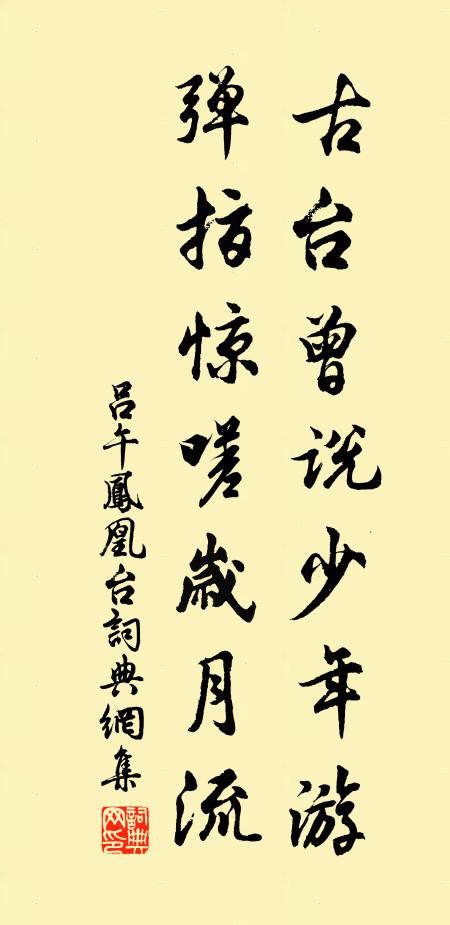 古台曾说少年游
弹指惊嗟岁月流
吕午鳳凰台詞典網集
詞典网印